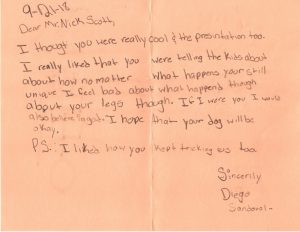 9-21-18
Dear Mr. Nick Scott,
I though you were really cool & the presentation too.
I really liked that you were telling the kids about
about how no matter what happens your still
unique I feel bad about what happend though
about your legs though. If I were you I would
also be
I hope that your dog will be
okay.
P.S. I liked how you kept tricking us too
Sincerily
Diego
Sandoval